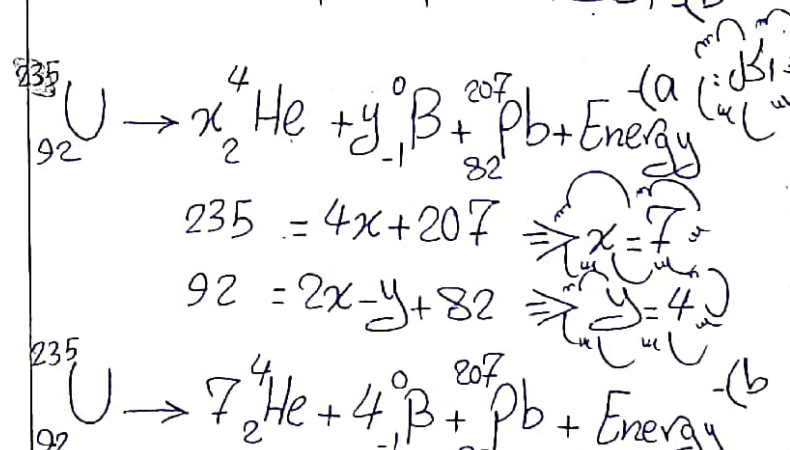 a)- ²³⁵₉₂U → x ⁴₂He + y ⁰₋₁β + ²⁰⁷₈₂Pb + Energy
235 = 4x + 207 ⇒ x = 7
92 = 2x - y + 82 ⇒ y = 4
b)- ²³⁵₉₂U → 7 ⁴₂He + 4 ⁰₋₁β + ²⁰⁷Pb + Energy